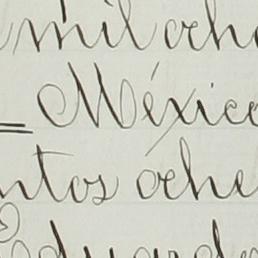 mil ocho
= México
ntos oche